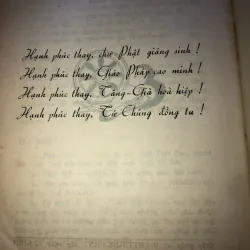 Hạnh phúc thay, chư Phật giáng sinh !
Hạnh phúc thay, Giáo Pháp cao minh !
Hạnh phúc thay, Tăng-Già hoà hiệp !
Hạnh phúc thay, Tứ Chúng đồng tu !